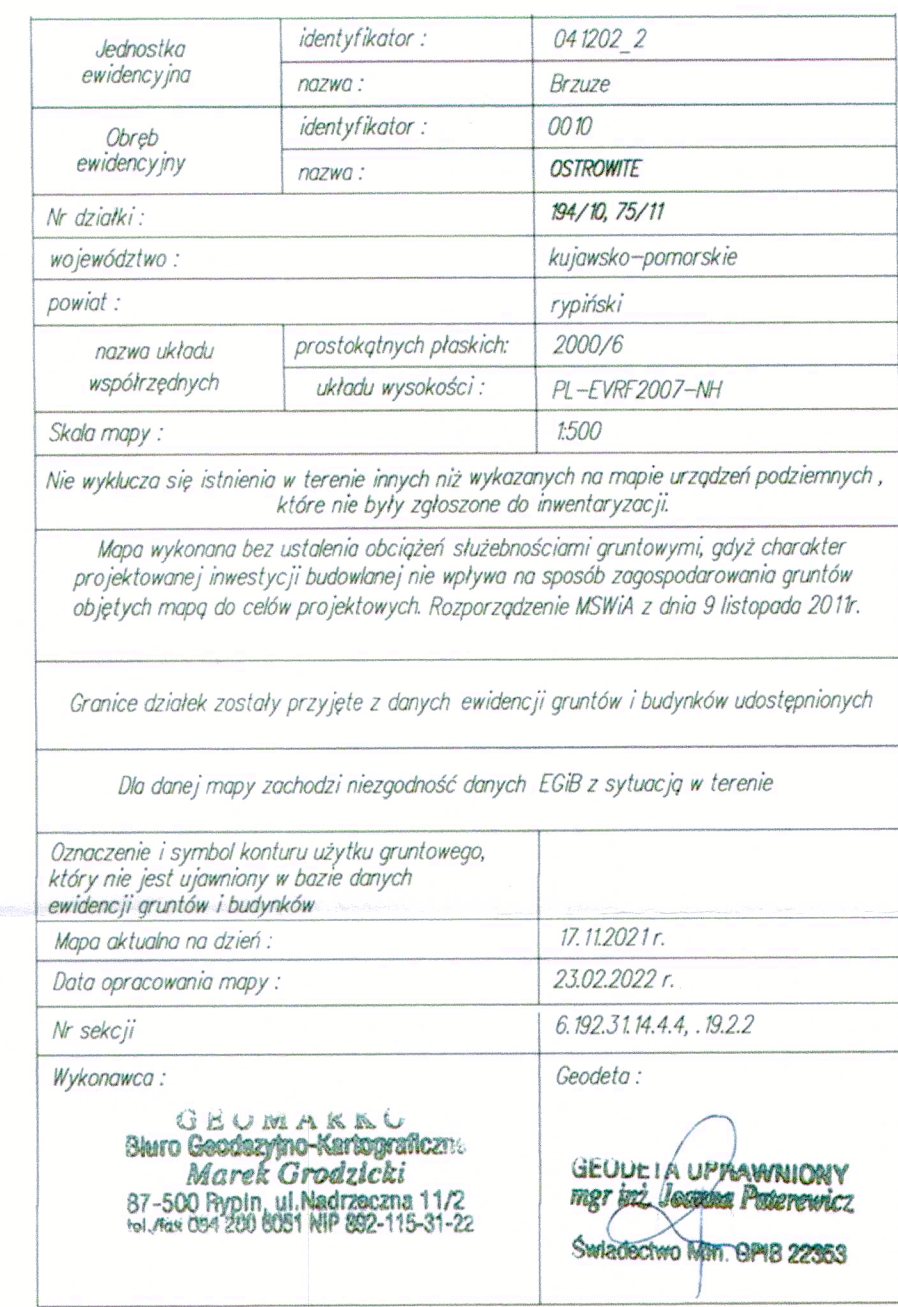 Jednostka
ewidencyjna
identyfikator :
041202_2
nazwa :
Brzuze
Obręb
ewidencyjny
identyfikator :
0010
nazwa :
OSTROWITE
Nr działki :
194/10, 75/11
województwo :
kujawsko-pomorskie
powiat :
rypiński
nazwa układu
współrzędnych
prostokątnych płaskich:
2000/6
układu wysokości :
PL-EVRF2007-NH
Skala mapy :
1:500
Nie wyklucza się istnienia w terenie innych niż wykazanych na mapie urządzeń podziemnych ,
które nie były zgłoszone do inwentaryzacji.
Mapa wykonana bez ustalenia obciążeń służebnościami gruntowymi, gdyż charakter
projektowanej inwestycji budowlanej nie wpływa na sposób zagospodarowania gruntów
objętych mapą do celów projektowych. Rozporządzenie MSWiA z dnia 9 listopada 2011r.
Granice działek zostały przyjęte z danych ewidencji gruntów i budynków udostępnionych
Dla danej mapy zachodzi niezgodność danych EGiB z sytuacją w terenie
Oznaczenie i symbol konturu użytku gruntowego,
który nie jest ujawniony w bazie danych
ewidencji gruntów i budynków
Mapa aktualna na dzień :
17.11.2021 r.
Data opracowania mapy :
23.02.2022 r.
Nr sekcji
6.192.31.14.4.4, .19.2.2
Wykonawca :
GEOMARKO
Biuro Geodezyjno-Kartograficzne
Marek Grodzicki
87-500 Rypin, ul.Nadrzeczna 11/2
tel./fax 054 200 6051 NIP 892-115-31-22
Geodeta :
GEODETA UPRAWNIONY
mgr inż. Joanna Paterewicz
Świadectwo Min. GPIB 22353